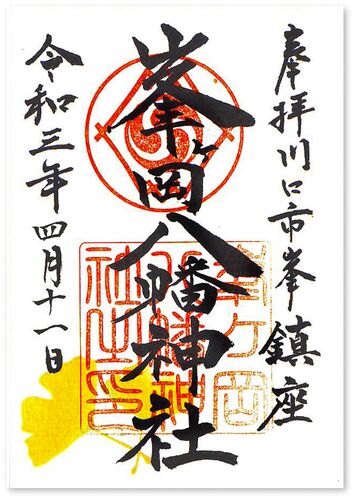 奉拝川口市峯鎮座
峯ヶ岡八幡神社
令和三年四月十一日
峯ヶ岡
八幡神
社之印